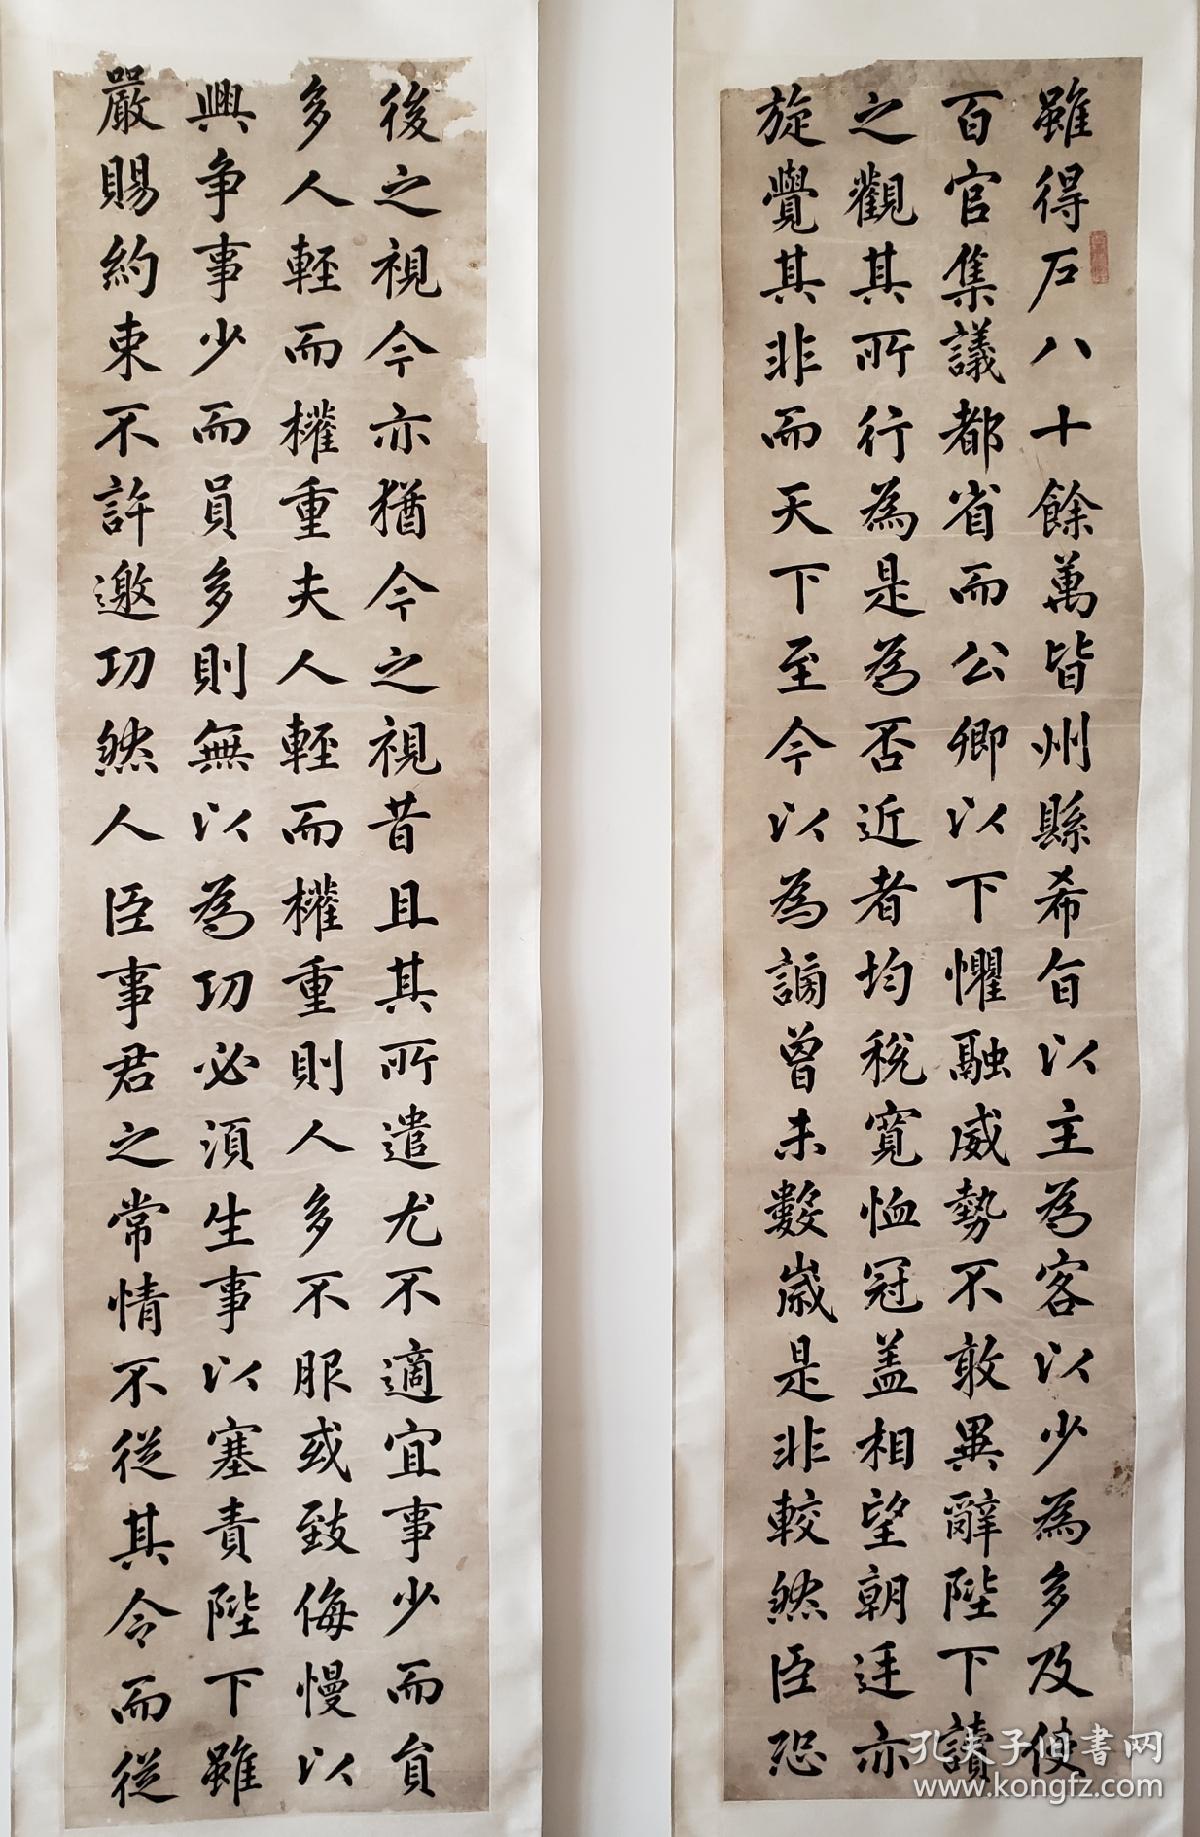 雖得戶八十餘萬皆州縣希旨以主為客以少為多及使
百官集議都省而公卿以下懼融威勢不敢異辭陛下讀
之觀其所行為是為否近者均稅寬恤冠盖相望朝廷亦
旋覺其非而天下至今以為謗曾未數歲是非較然臣恐
後之視今亦猶今之視昔且其所遣尤不適宜事少而員
多人輕而權重夫人輕而權重則人多不服或致侮慢以
興争事少而員多則無以為功必須生事以塞責陛下雖
嚴賜約束不許邀功然人臣事君之常情不從其令而從
孔夫子旧書网
www.kongfz.com